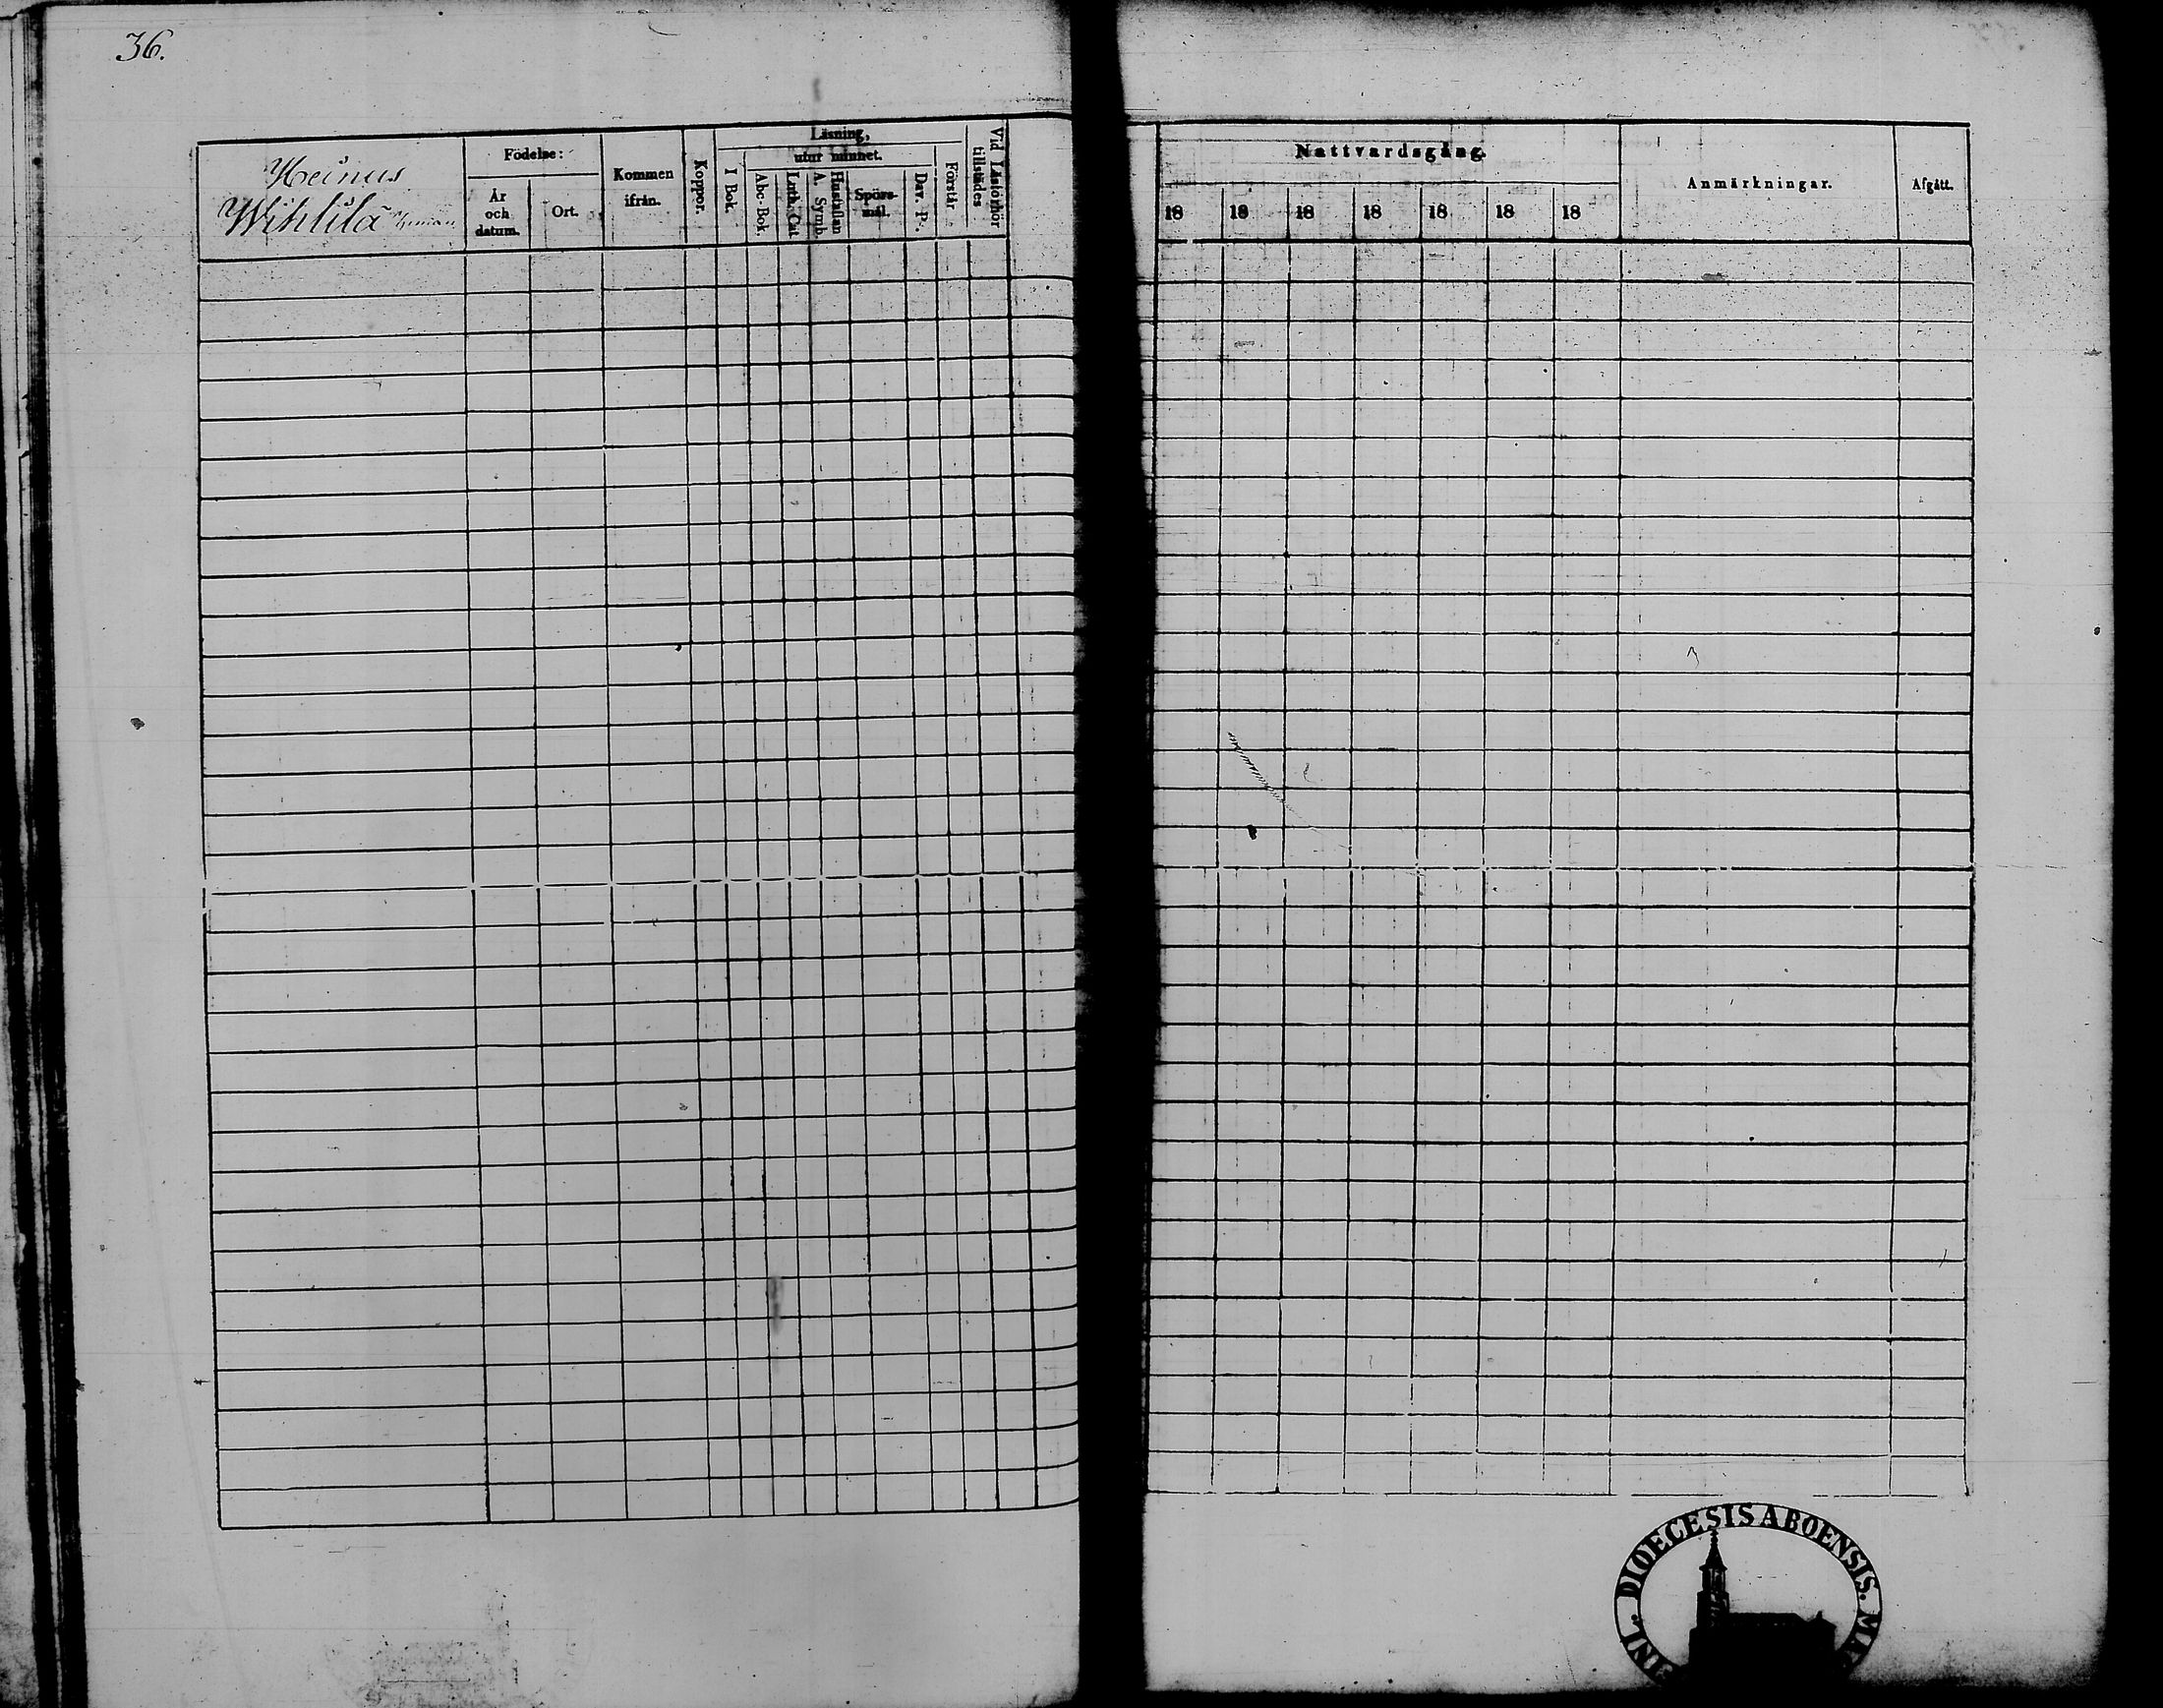 36.
Heinus
Wihlilä
Födelse:
År
och
datum.
Ort.
Kommen
ifrån.
Koppor.
Läsning,
utur minnet.
I Bok.
Abc-Bok.
Luth. Cat.
Hustaflan
A. Symb.
Spörs-
mål.
Dav. P.
Förstår.
Vid Läsförhör
tillstädes
Nattvardsgång.
18 18 18 18 18 18 18
Anmärkningar.
Afgått.
DIOECESIS ABOENSIS.